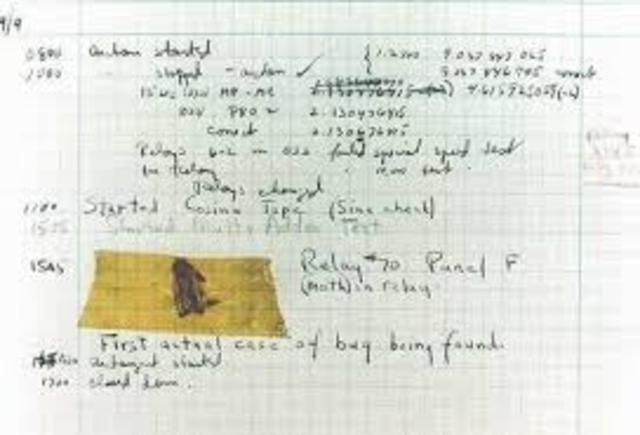 9/9
0800 antan started
1000 stopped - antan ✓ { 1.2700 9.037 847 025
9.037 846 995 correct
13" uc (032) MP - MC 4.615925059(-2)
033 PRO 2 2.130476415
correct 2.130676415
Relays 6-2 in 033 failed special speed test
in relay
Relays changed
1100 Started Cosine Tape (Sine check)
1525 Started Multi Adder Test
1545 Relay #70 Panel F
(moth) in relay.
First actual case of bug being found.
antangent started
1700 closed down.